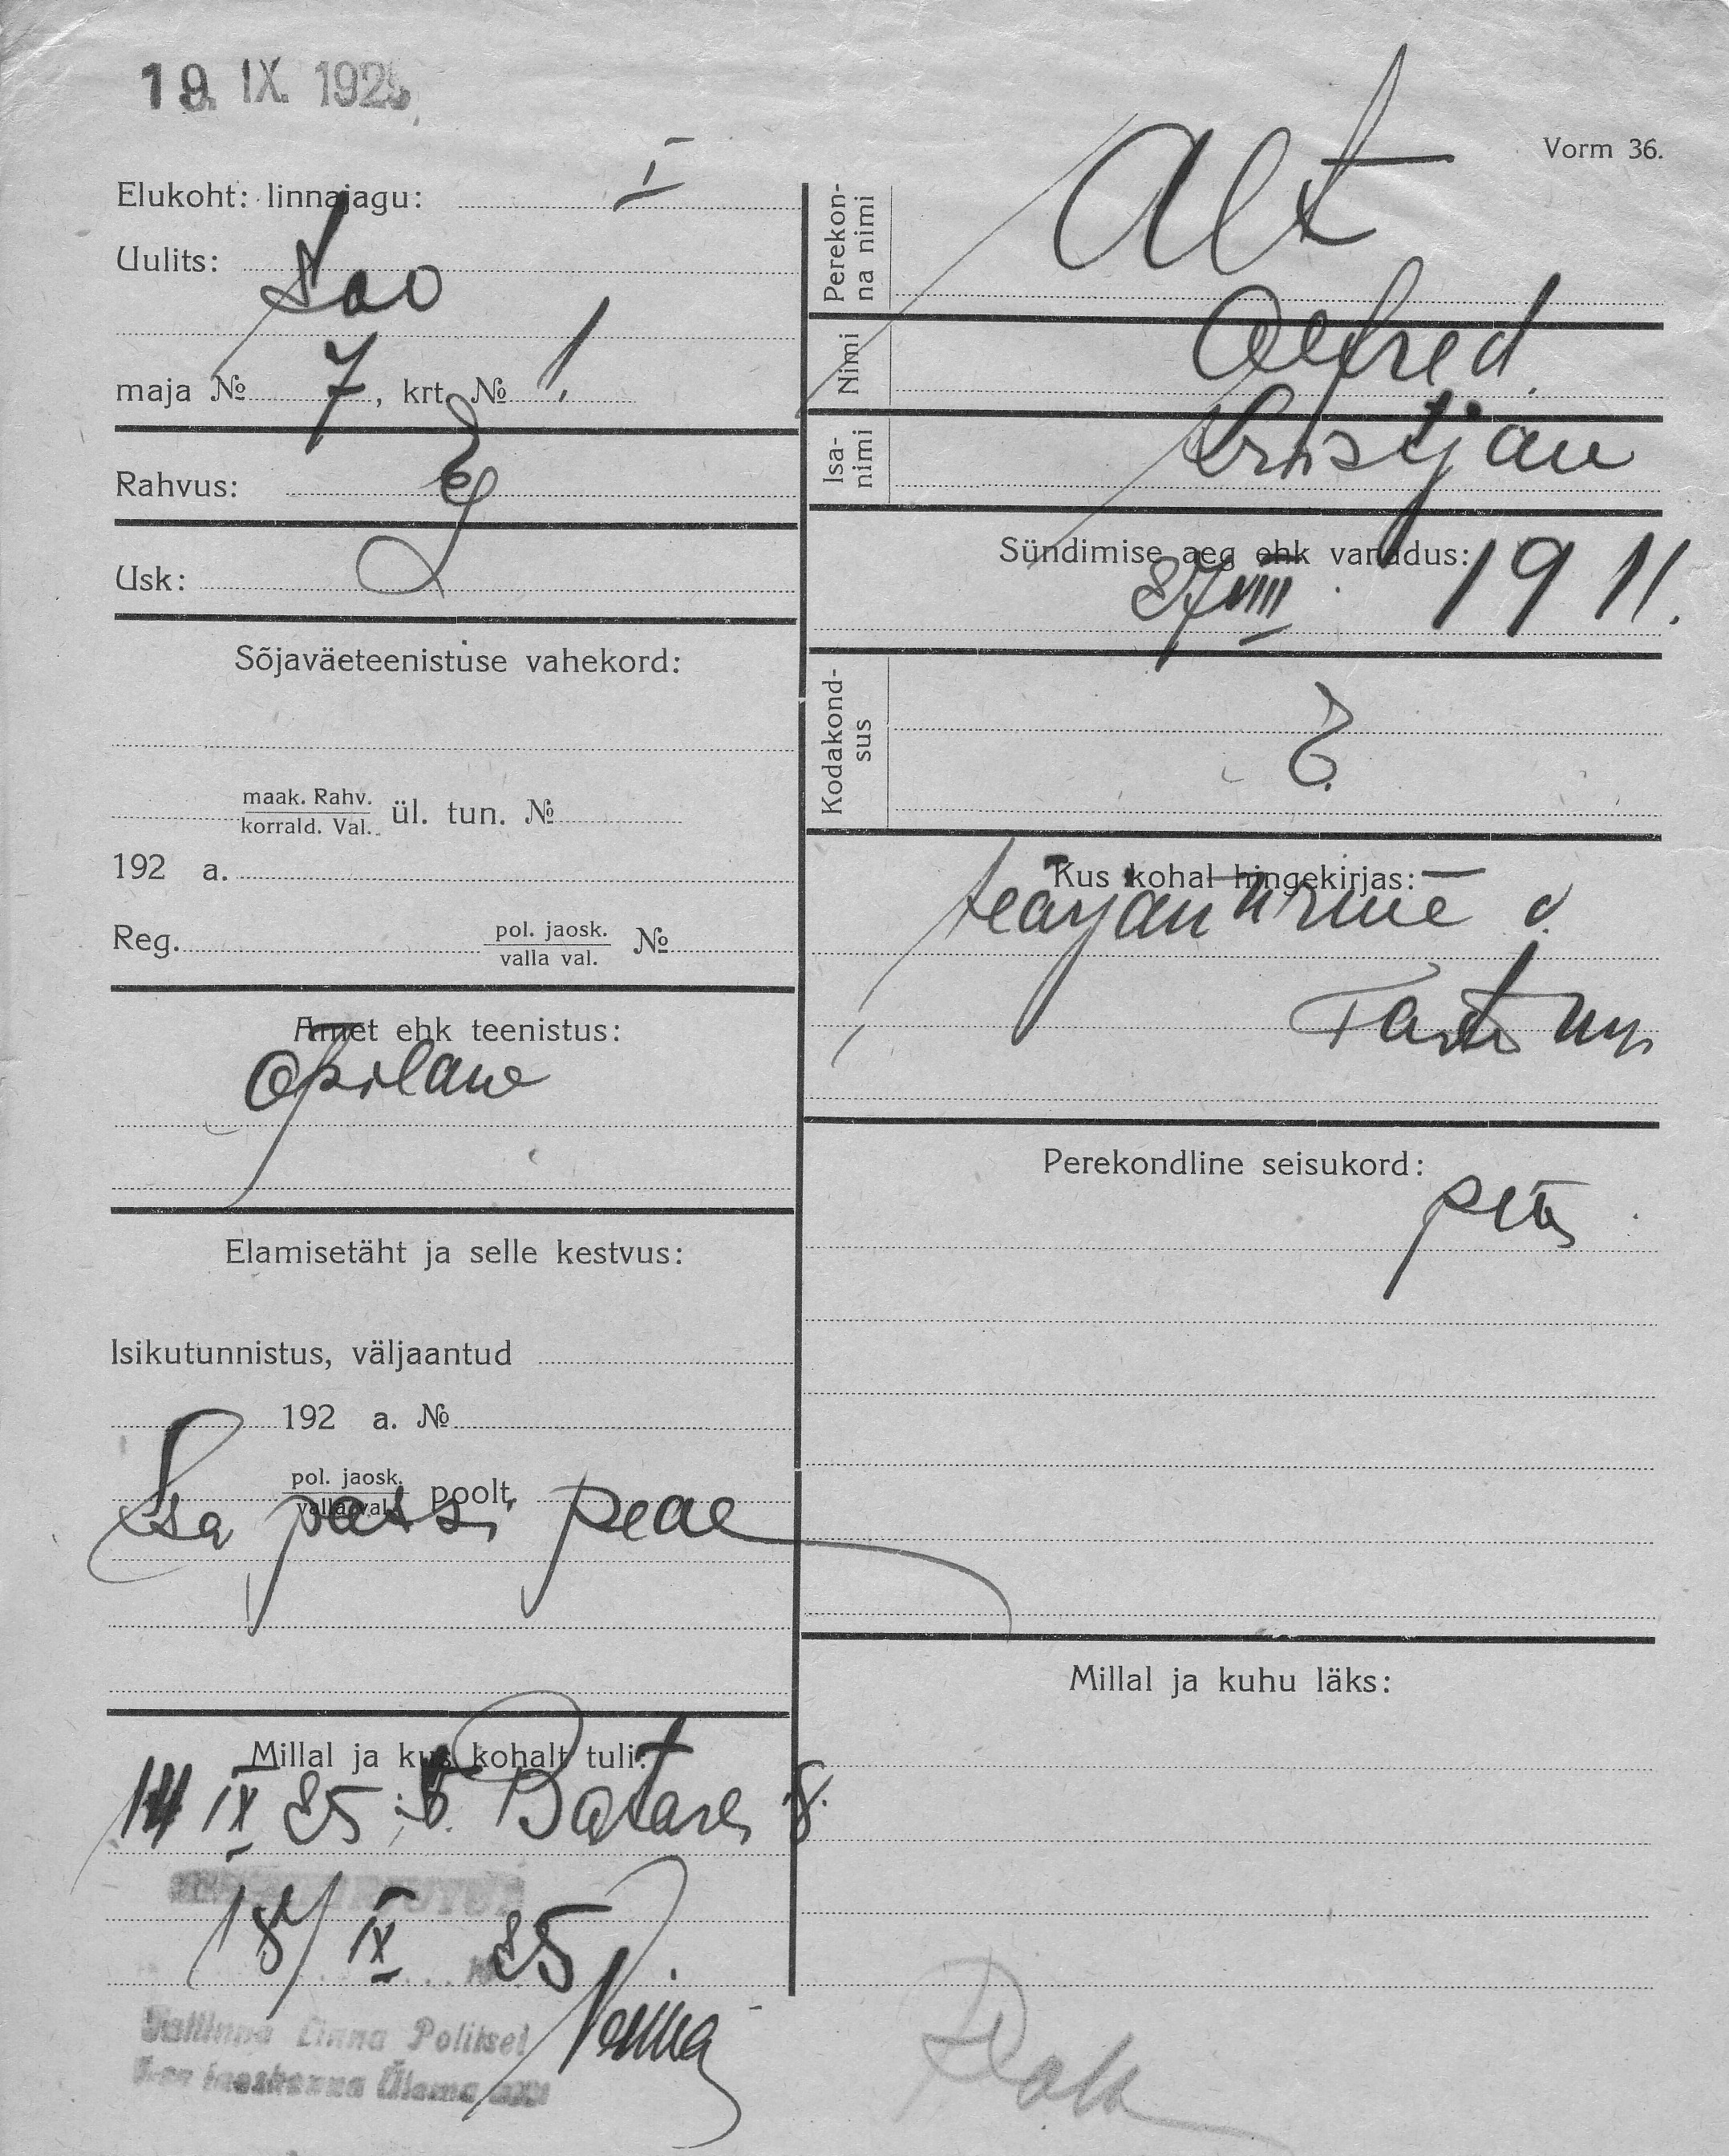 19. IX. 1925
Vorm 36.
Elukoht: linnajagu: I
Uulits: Soo
maja № 7, krt. № 1.
Rahvus: E
Usk:
Sõjaväeteenistuse vahekord:
maak. Rahv.
korrald. Val. ül. tun. №
192 a.
Reg. pol. jaosk.
valla val. №
Amet ehk teenistus:
Õpilane
Elamisetäht ja selle kestvus:
Isikutunnistus, väljaantud
192 a. №
pol. jaosk.
valla val. poolt,
Isa passi peal
Millal ja kus kohalt tuli:
14 IX 25 Patarei 8.
18/IX 25
Tallinna Linna Politsei
jaoskonna Ülema
Perekonna nimi
Alt
Nimi
Alfred
Isanimi
Kristjan
Sündimise aeg ehk vanadus:
27 VIII 1911.
Kodakondsus
E.
Kus kohal hingekirjas:
v.
Tartu
Perekondline seisukord:
Millal ja kuhu läks: